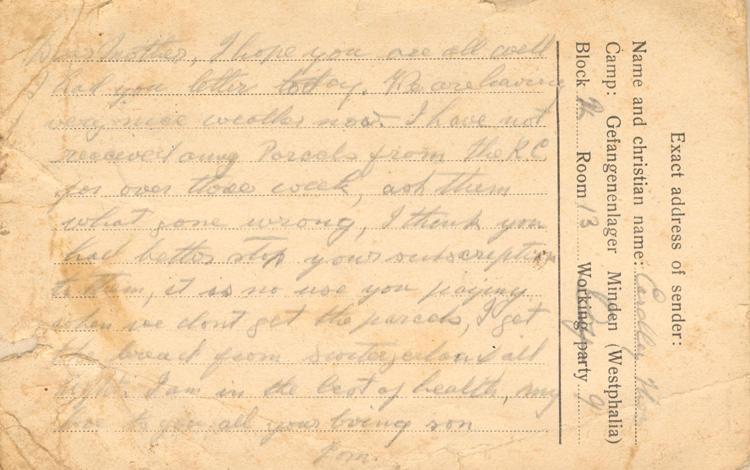 Dear Mother, I hope you are all well
I had you letter today. We are having
very nice weather now. I have not
received any Parcels from the R C
for over three week, ask them
what gone wrong, I think you
had better stop your subscription
to them, it is no use you paying
when we dont get the parcels, I get
the bread from switzerland all
right. I am in the best of health, my
love to you all your loving son
Tom.
Exact address of sender:
Name and christian name:
Camp: Gefangenenlager Minden (Westphalia)
Block 2 Room 13 Working party